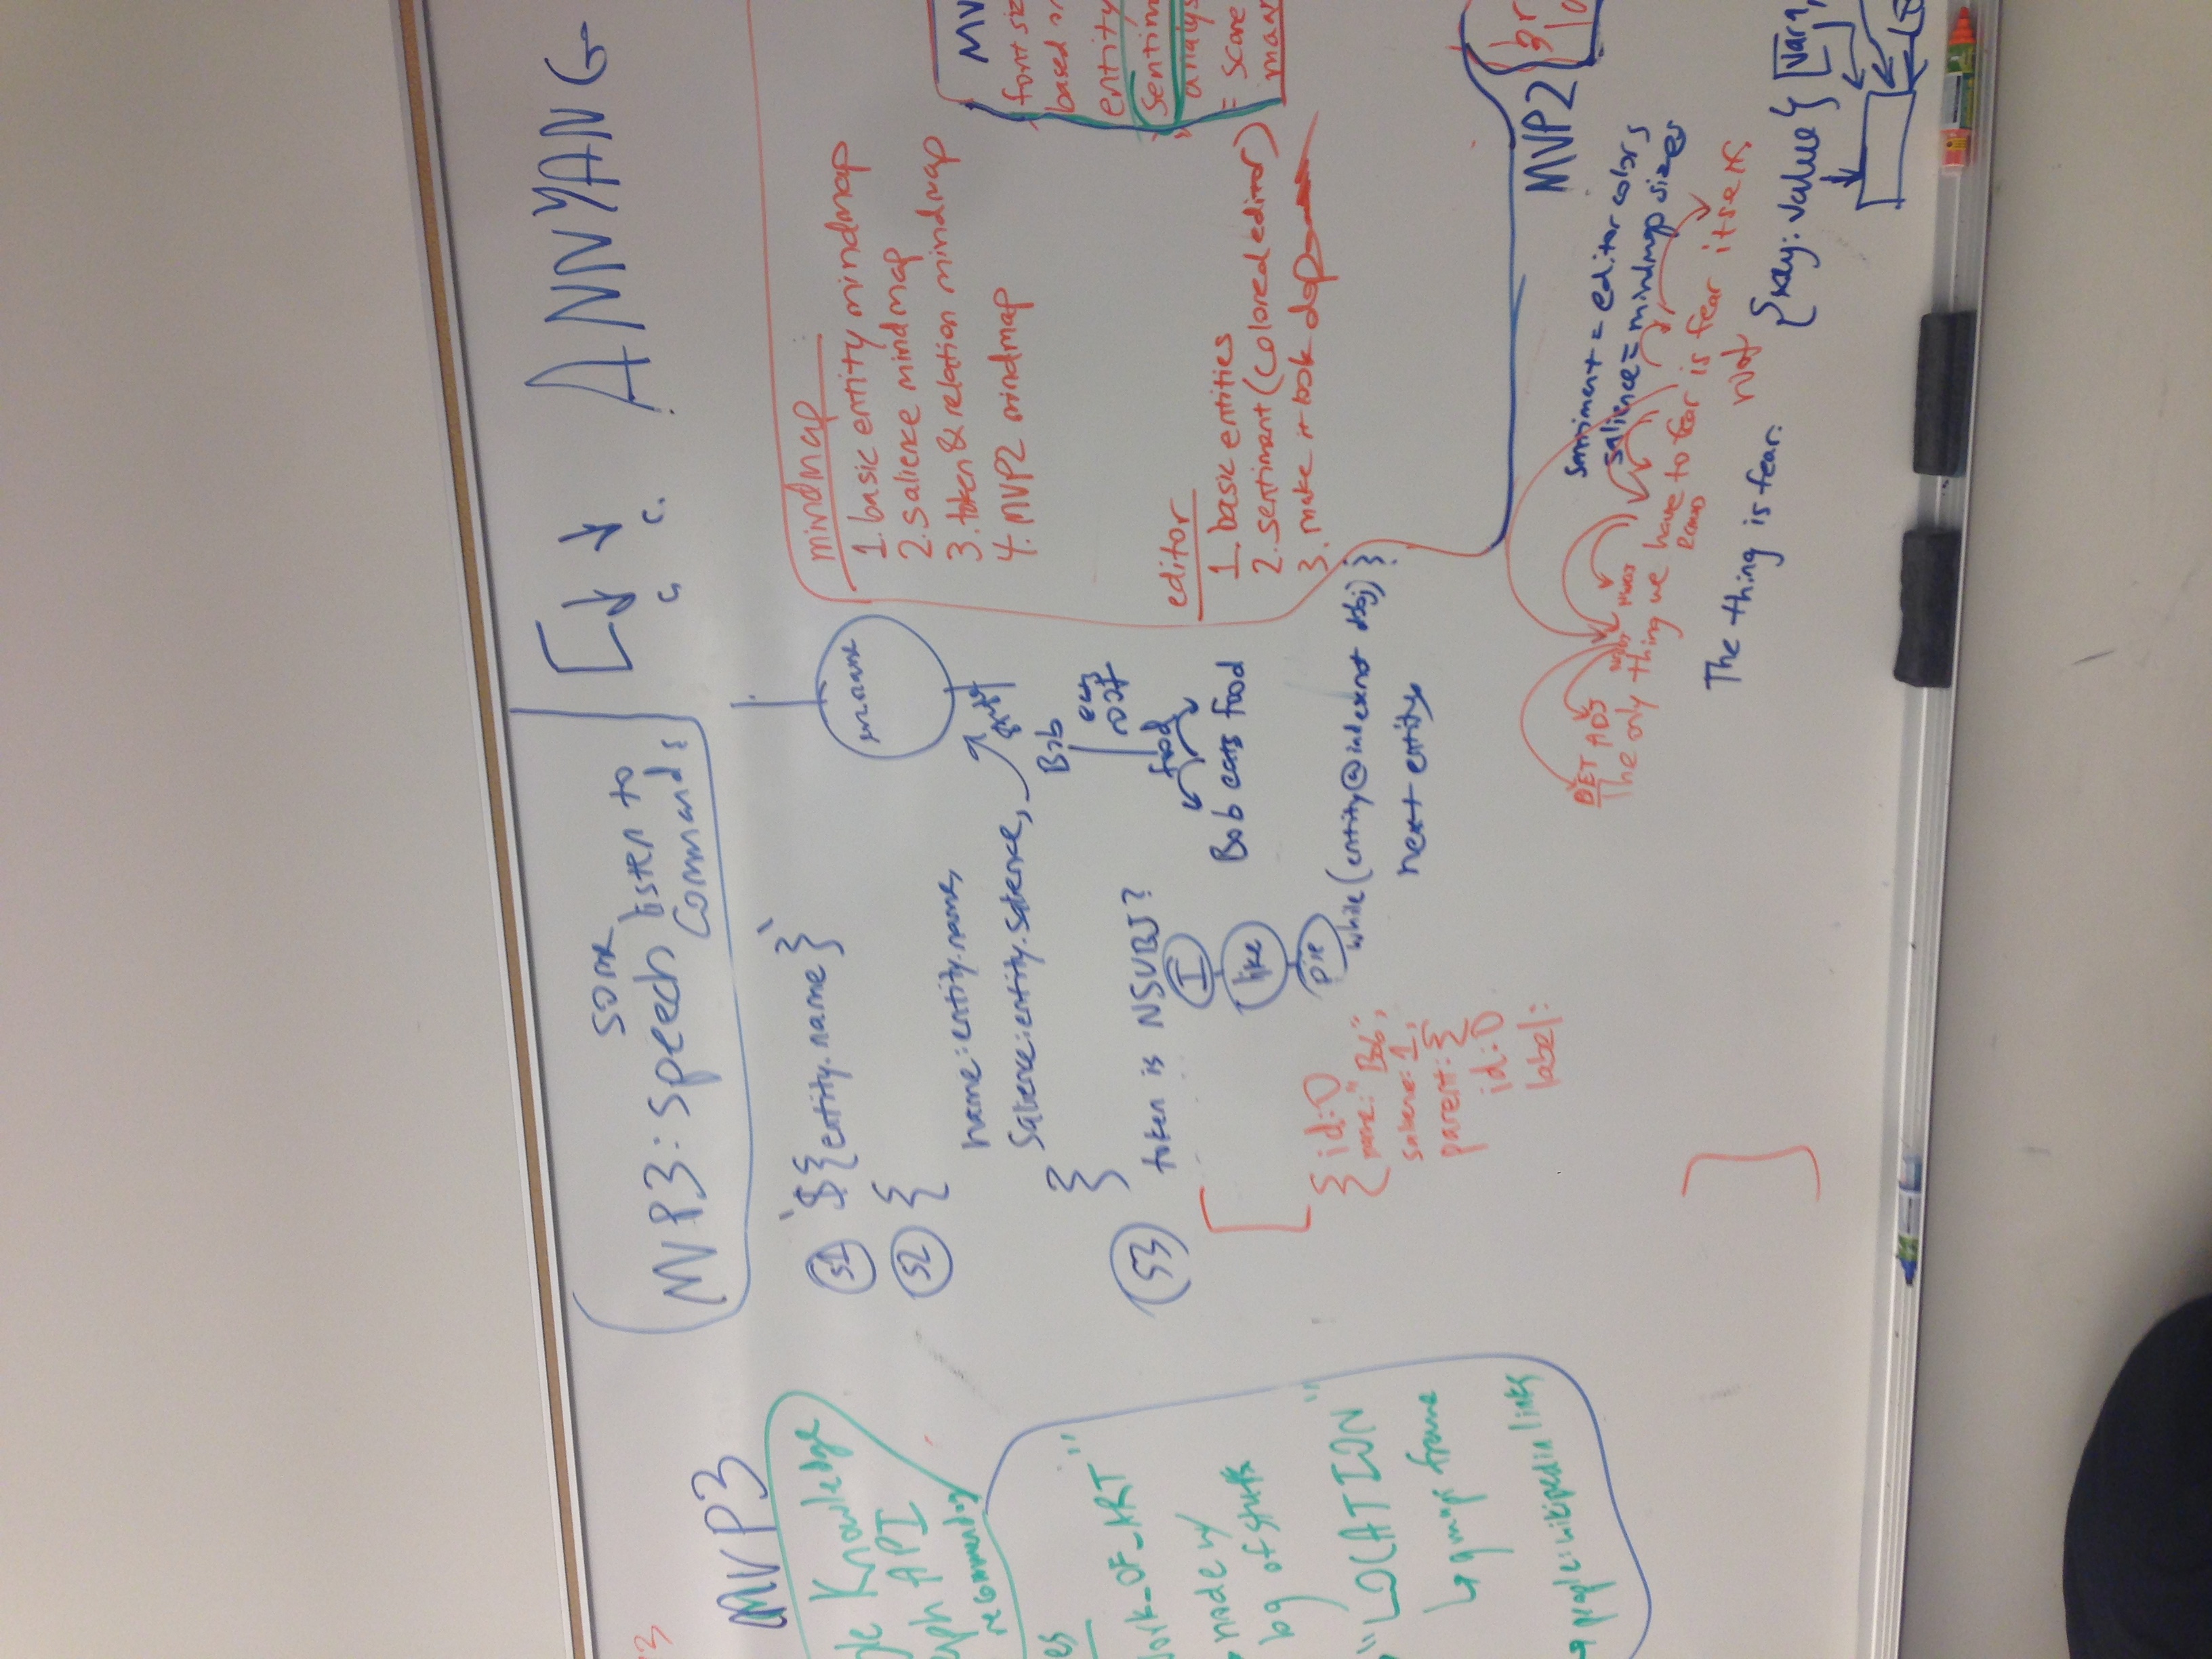 MVP3
Knowledge
API
"LOCATION"
↳ gmaps frame
people: wikipedia links
some
MVP3: Speech listen to
commands
ANNYANG
S1 `${entity.name}`
S2 {
name: entity.name,
Salience: entity.salience,
}
S3 token is NSUBJ?
I
like
pie
[
{ id: 0
name: "Bob",
salience: 1,
parent: {
id: 0
label:
]
Bob
eats
root
food
Bob eats food
while (entity@index not dobj) {
next entity
mindmap
1. basic entity mindmap
2. salience mindmap
3. token & relation mindmap
4. MVP2 mindmap
editor
1. basic entities
2. sentiment (colored editor)
3. make it look dop
font siz
based on
entity
Sentim
analys
= score
MVP2
sentiment = editor colors
salience = mindmap sizes
DET ADJ
The only thing we have to fear is fear itself
not
The thing is fear.
{key: value}